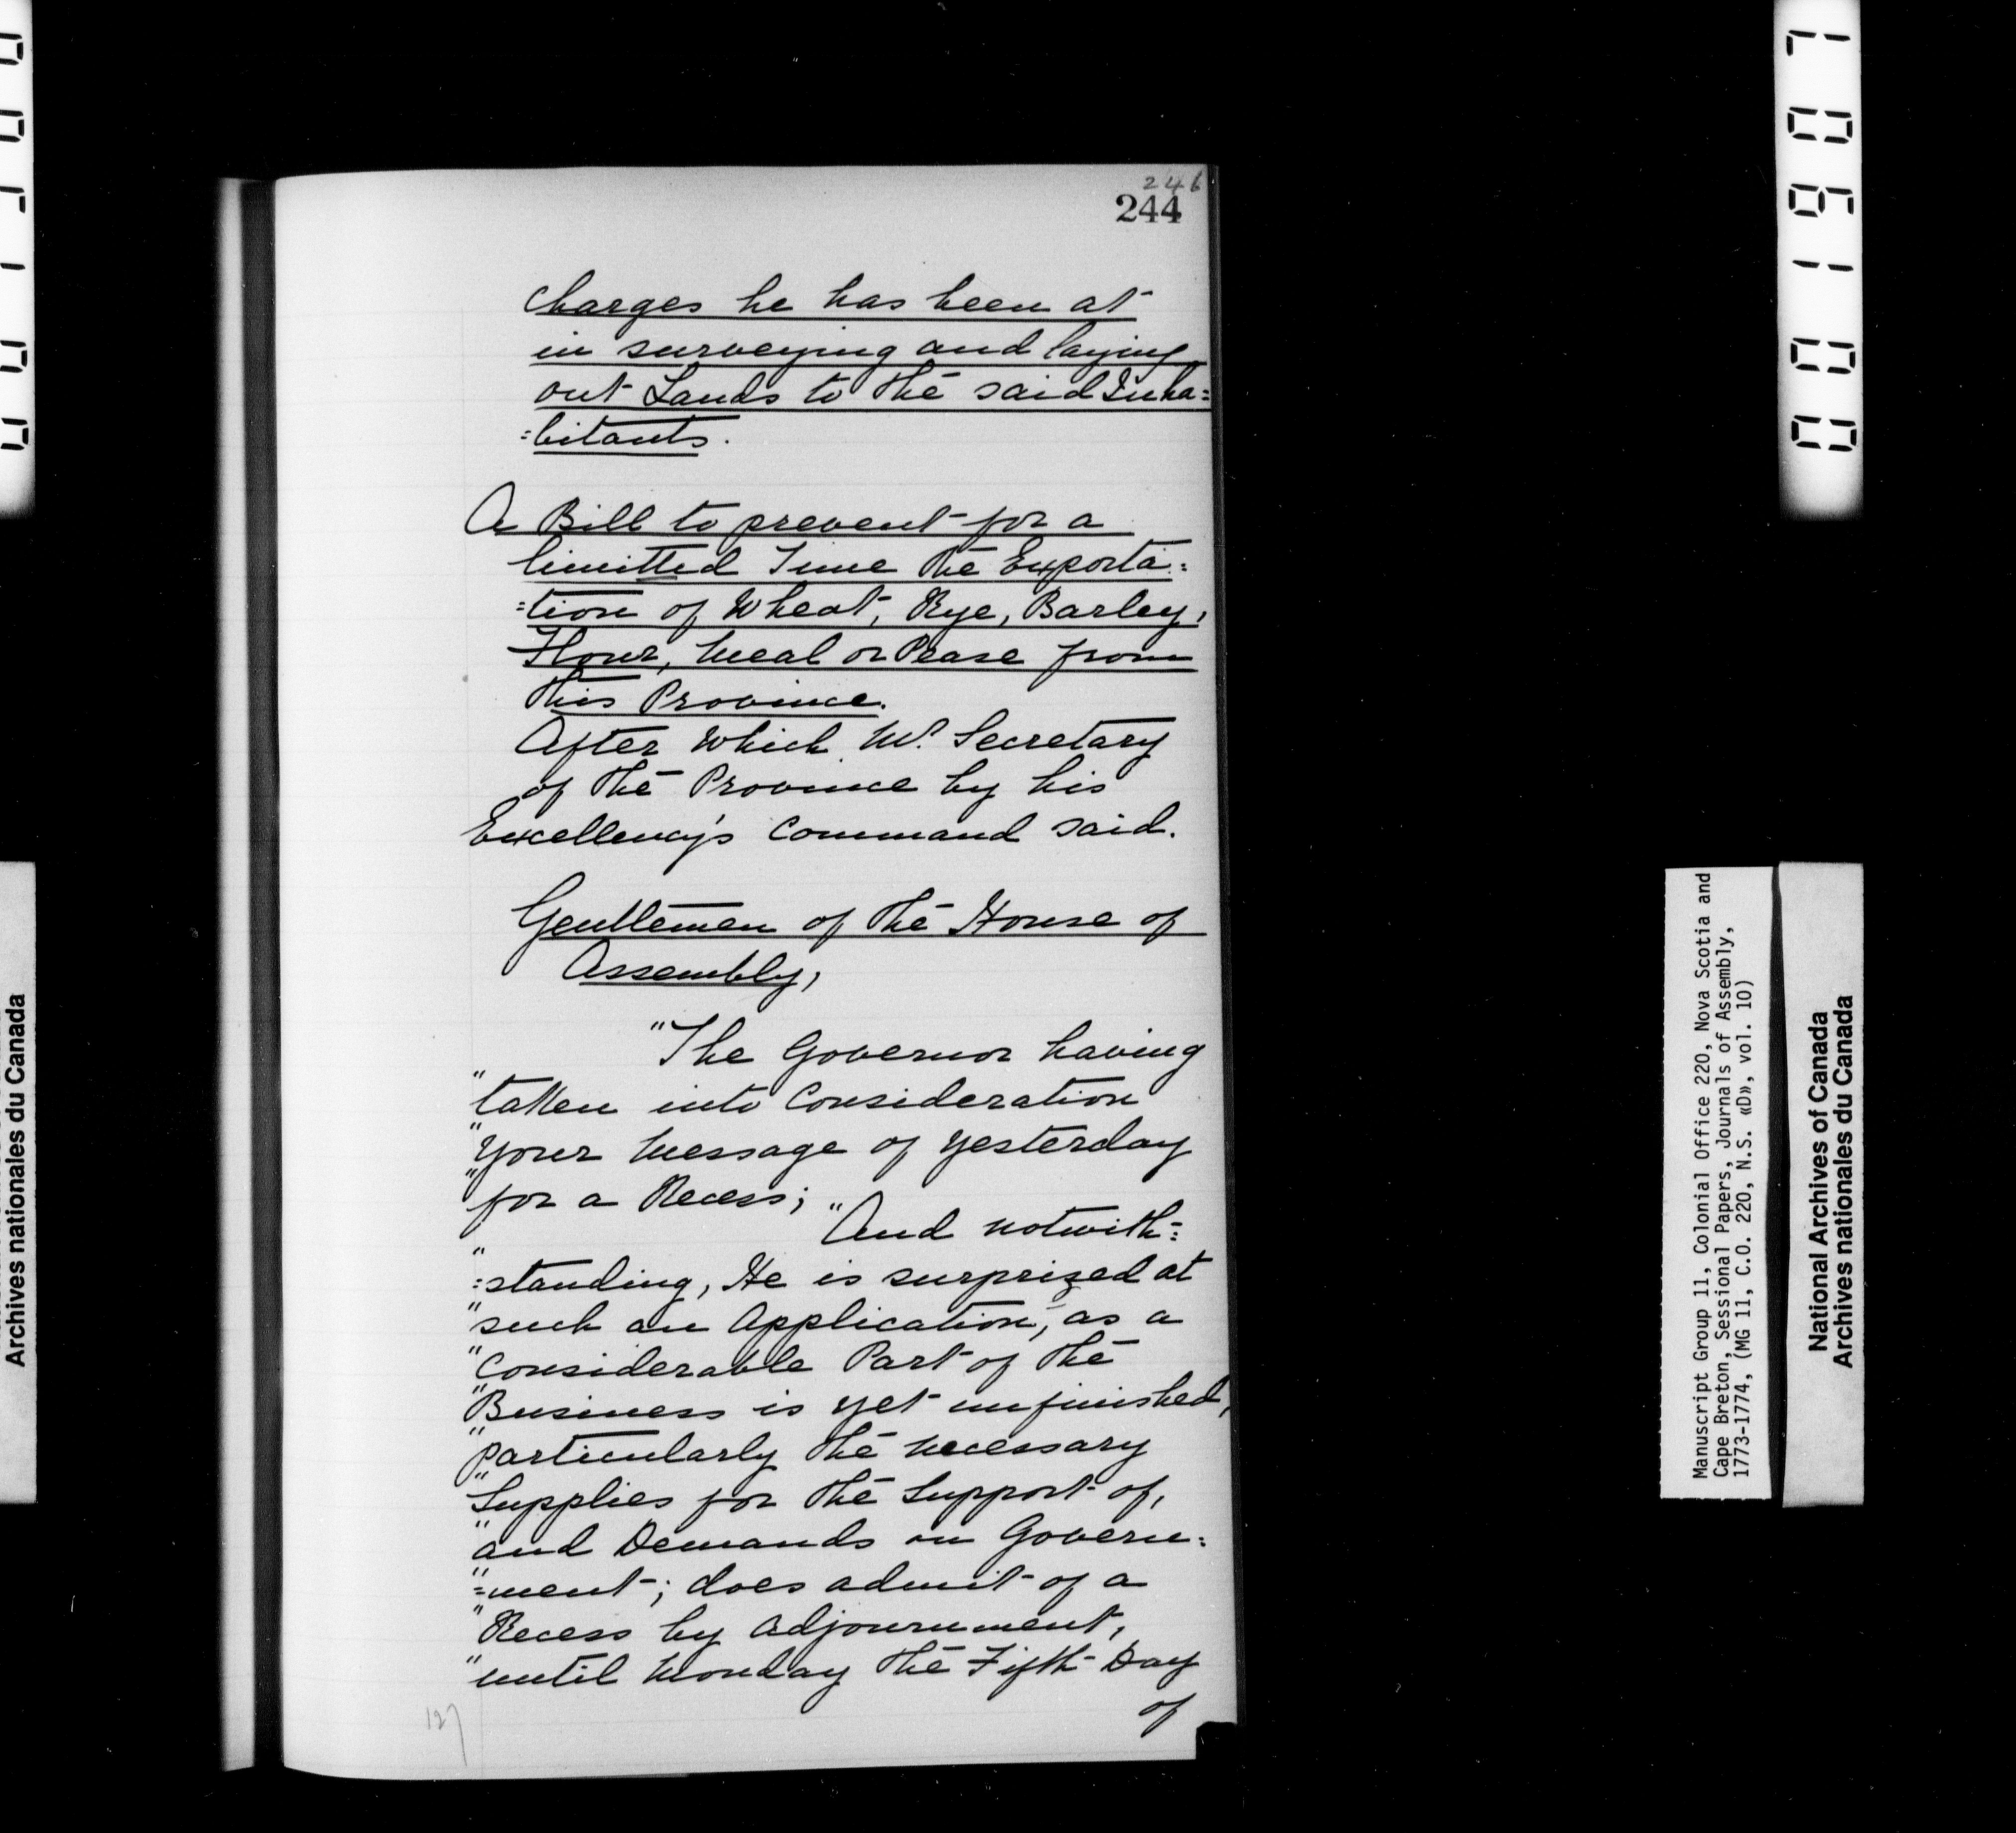 246
244
charges he has been at
in surveying and laying
out Lands to the said Inha=
=bitants.
A Bill to prevent for a
limitted Time the Exporta=
=tion of Wheat, Rye, Barley,
Flour, Meal or Pease from
this Province.
After which Mr. Secretary
of the Province by his
Excellency's Command said.
Gentlemen of the House of
Assembly,
"The Governor having
"taken into Consideration
"your Message of yesterday
"for a Recess; "And notwith=
"=standing, He is surprized at
"such an Application, as a
"Considerable Part of the
"Business is yet unfinished,
"particularly the necessary
"Supplies for the Support of,
"and Demands on Govern=
"=ment; does admit of a
"Recess by Adjournment,
"until Monday the Fifth Day
of
127
Manuscript Group 11, Colonial Office 220, Nova Scotia and
Cape Breton, Sessional Papers, Journals of Assembly,
1773-1774, (MG 11, C.O. 220, N.S. «D», vol. 10)
National Archives of Canada
Archives nationales du Canada
Archives nationales du Canada